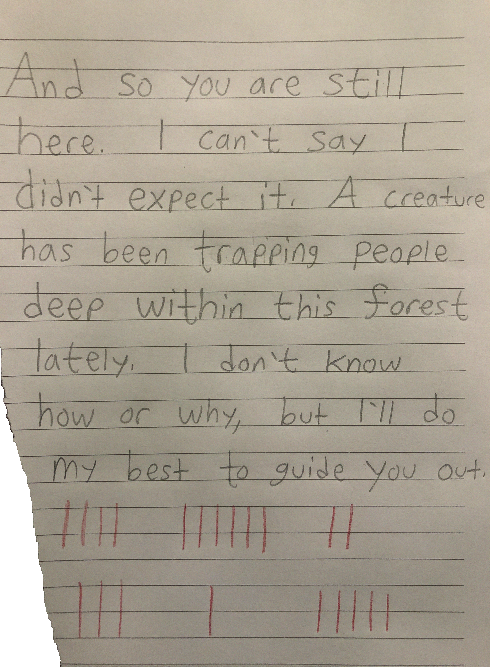 And so you are still
here. I can't say I
didn't expect it. A creature
has been trapping people
deep within this forest
lately. I don't know
how or why, but I'll do
my best to guide you out.
|||| |||||| ||
||| | |||||